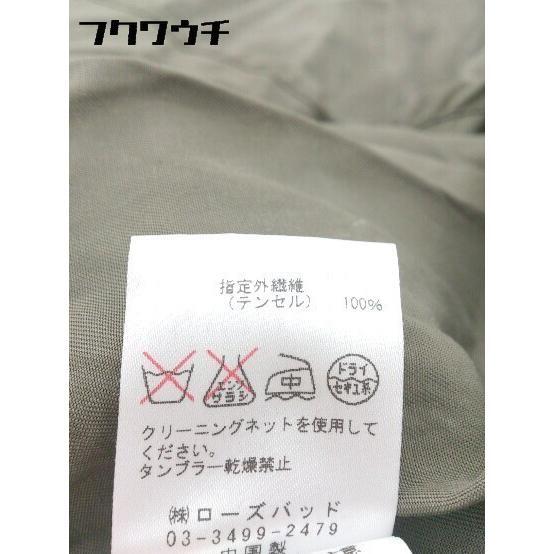 フクワウチ
指定外繊維
(テンセル) 100%
エンソ
サラシ
中
ドライ
セキユ系
クリーニングネットを使用して
ください。
タンブラー乾燥禁止
㈱ローズバッド
03-3499-2479
中国製